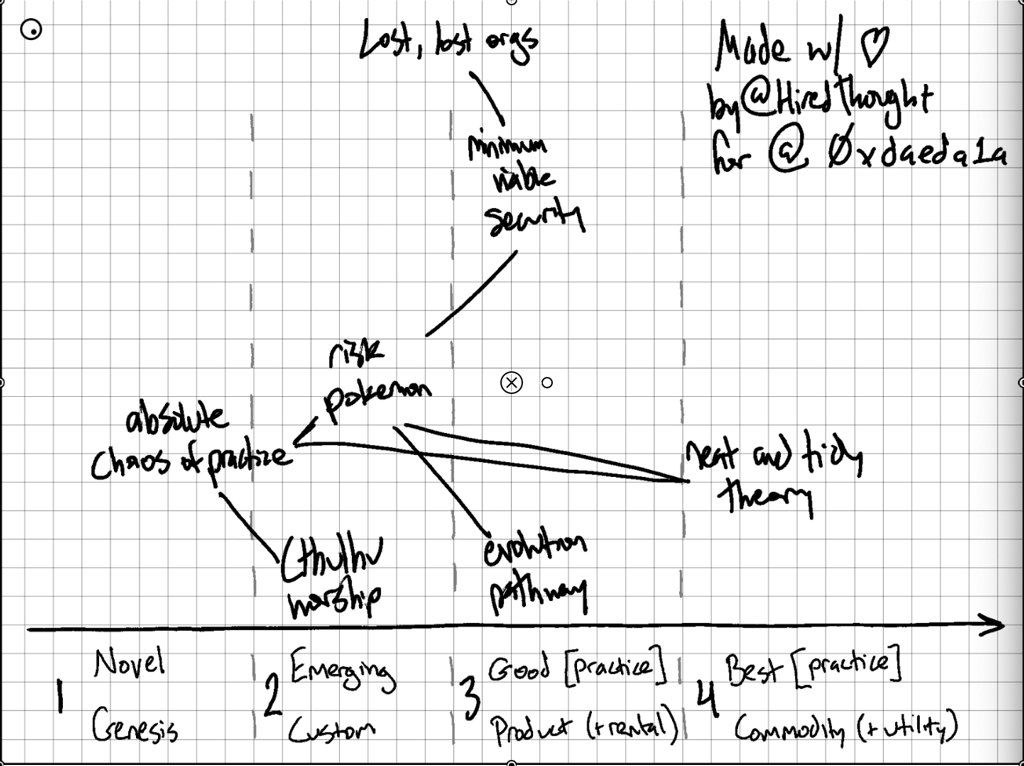 Lost, lost orgs
Made w/ ♡
by @HiredThought
for @ 0xdaeda1a
minimum
viable
security
risk
pokemon
absolute
chaos of practice
neat and tidy
theory
Cthulhu
worship
evolution
pathway
1
Novel
Genesis
2
Emerging
Custom
3
Good [practice]
Product (+rental)
4
Best [practice]
Commodity (+utility)